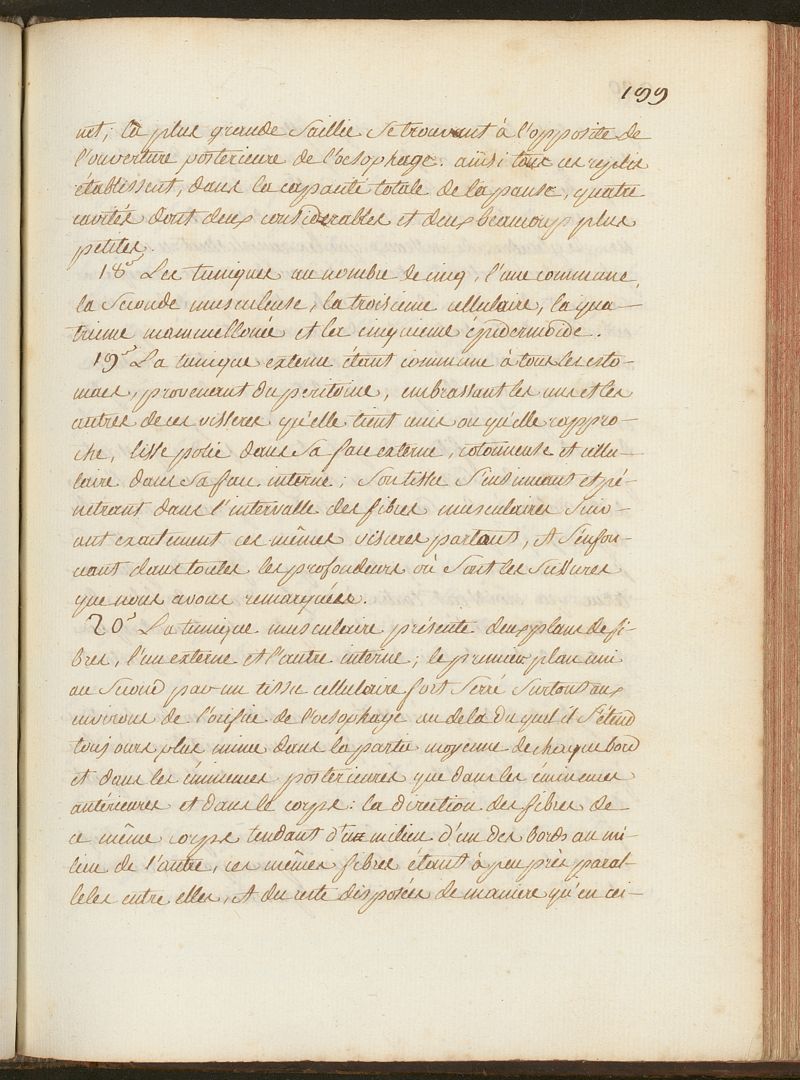 199
net; la plus grande saillie se trouvant à l'opposite de
l'ouverture posterieure de l'oesophage. ainsi tous ces replis
établissent, dans la capacité totale de la panse, quatre
cavités dont deux considerables et deux beaucoup plus
petites.
18° Les tuniques au nombre de cinq, l'une commune,
la seconde musculeuse, la troisieme cellulaire, la qua-
trieme mammellonée et la cinquieme épidermoïde.
19° La tunique externe étant commune à tous les esto-
macs, provenant du peritoine, embrassant les uns et les
autres de ces visseres qu'elle tient unis ou qu'elle rappro-
che, lisse polie dans sa face externe, cotonneuse et cellu-
laire dans sa face interne; son tissu s'insinuant et pé-
netrant dans l'intervalle des fibres musculaires suiv-
ant exactement ces mêmes visceres partout, et s'enfon-
cant dans toutes les profondeurs où sont les scissures
que nous avons remarquées.
20° La tunique musculaire présente deux plans de fi-
bres, l'un externe et l'autre interne; le premier plan uni
au second par un tissu cellulaire fort serré surtout aux
environs de l'orifice de l'oesophage au dela du quel il s'étend
toujours plus mince dans la partie moyenne de chaque bord
et dans les éminences posterieures que dans les éminences
antérieures et dans le corps: la direction des fibres de
ce même corps tendant d'un milieu d'un des bords au mi-
lieu de l'autre, ces mêmes fibres étant à peu près paral-
leles entre elles, et du reste disposées de maniere qu'en cei-